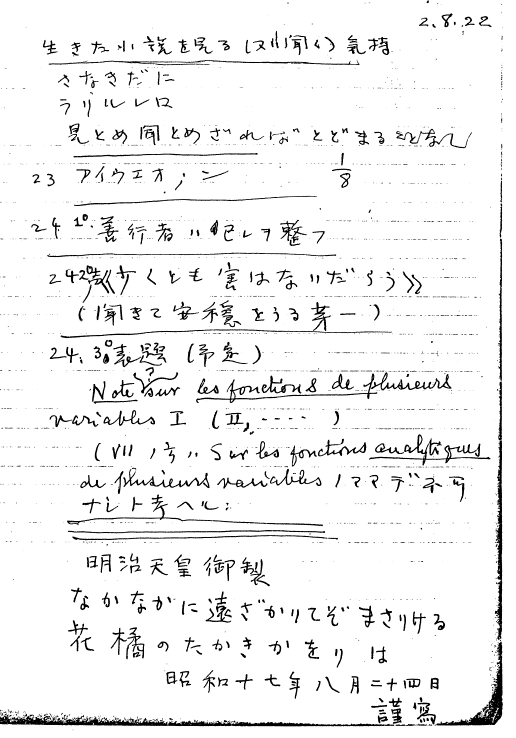 2.8.22
生きた小説を見る(又ハ聞く)氣持
さなきだに
ラリルレロ
見とめ聞とめざればとどまることなし
23 アイウエオ,ン 1/8
24 1°. 善行者ハ 己レヲ整フ
24 2° 《少くとも害はないだらう》
(聞きて安穩をうる第一)
24. 3° 表題 (予定)
?
Note sur les fonctions de plusieurs
variables I (II, ····· )
(VII ノ方ハ Sur les fonctions analytiques
de plusieurs variables ノママデ不可
ナシト考ヘル:
明治天皇御製
なかなかに遠ざかりてぞまさりける
花橘のたかきかをりは
昭和十七年八月二十四日
謹寫